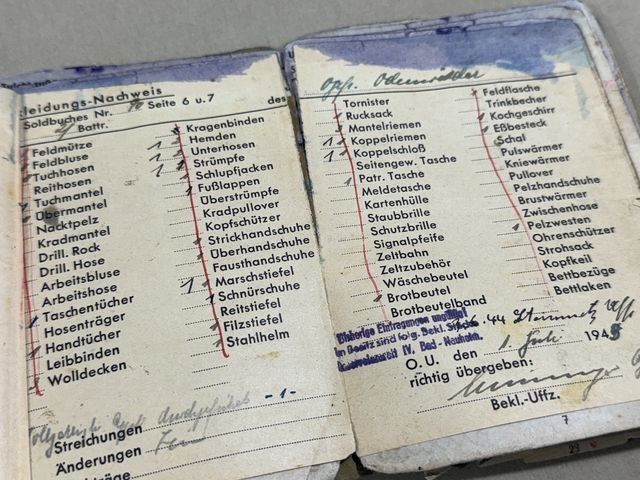 leidungs-Nachweis
Soldbuches Nr. Seite 6 u. 7
Battr.
des
Feldmütze
Feldbluse
Tuchhosen
Reithosen
Tuchmantel
Übermantel
Nacktpelz
Kradmantel
Drill. Rock
Drill. Hose
Arbeitsbluse
Arbeitshose
Taschentücher
Hosenträger
Handtücher
Leibbinden
Wolldecken
Kragenbinden
Hemden
Unterhosen
Strümpfe
Schlupfjacken
Fußlappen
Überstrümpfe
Kradpullover
Kopfschützer
Strickhandschuhe
Überhandschuhe
Fausthandschuhe
Marschstiefel
Schnürschuhe
Reitstiefel
Filzstiefel
Stahlhelm
Streichungen
-1-
Änderungen
Tornister
Rucksack
Mantelriemen
Koppelriemen
Koppelschloß
Seitengew. Tasche
Patr. Tasche
Meldetasche
Kartenhülle
Staubbrille
Schutzbrille
Signalpfeife
Zeltbahn
Zeltzubehör
Wäschebeutel
Brotbeutel
Brotbeutelband
Feldflasche
Trinkbecher
Kochgeschirr
Eßbesteck
Schal
Pulswärmer
Kniewärmer
Pullover
Pelzhandschuhe
Brustwärmer
Zwischenhose
Pelzwesten
Ohrenschützer
Strohsack
Kopfkeil
Bettbezüge
Bettlaken
Bisherige Eintragungen ungültig!
im Besitz sind folg. Bekl. Stücke
IV, Bad-Nauheim.
44
O. U. den 1. Juli 1945
richtig übergeben:
Bekl.-Uffz.
7
23